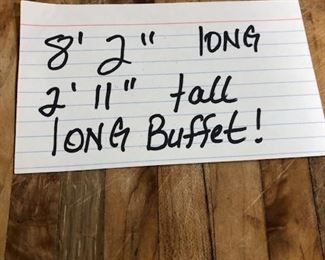 8' 2" lONG
2' 11" tall
lONG Buffet!